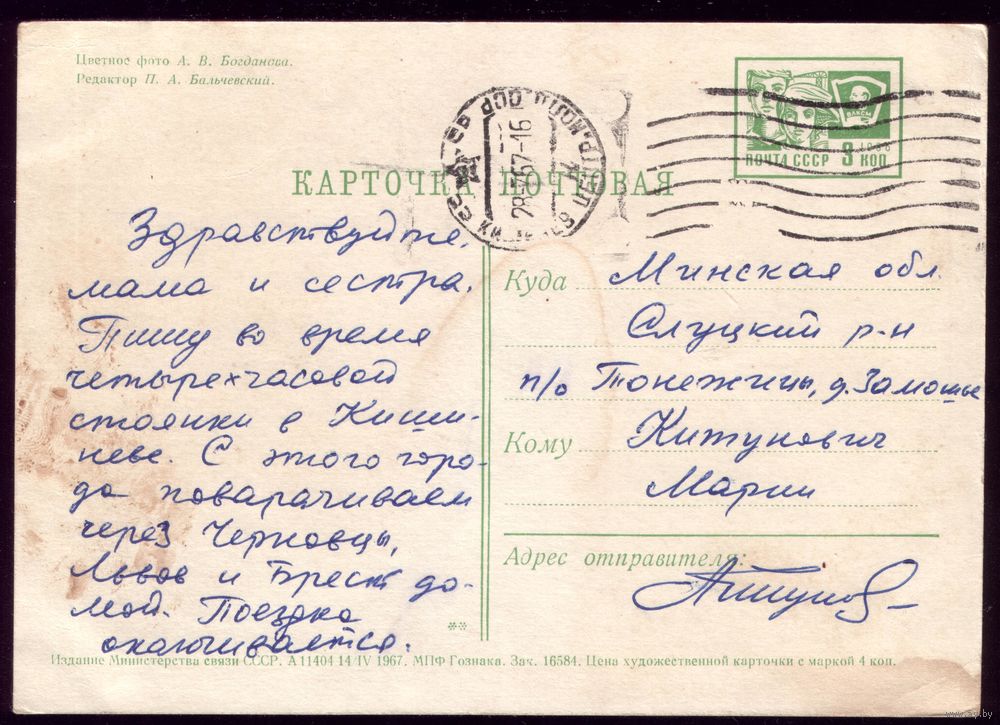 Цветное фото А. В. Богданова.
Редактор П. А. Бальчевский.
ВЛКСМ
1966
ПОЧТА СССР 3 КОП
28 67-16
КАРТОЧКА ПОЧТОВАЯ
Здравствуйте,
мама и сестра.
Пишу во время
четырехчасовой
стоянки в Киши-
неве. С этого горо-
да поварачиваем
через Черновцы,
Львов и Брест до-
мой. Поездка
оканчивается.
Куда Минская обл.
Слуцкий р-н
п/о Тонежицы, д. Замошье
Кому Китунович
Марии
Адрес отправителя:
**
Издание Министерства связи СССР. А 11404 14/IV 1967. МПФ Гознака. Зач. 16584. Цена художественной карточки с маркой 4 коп.